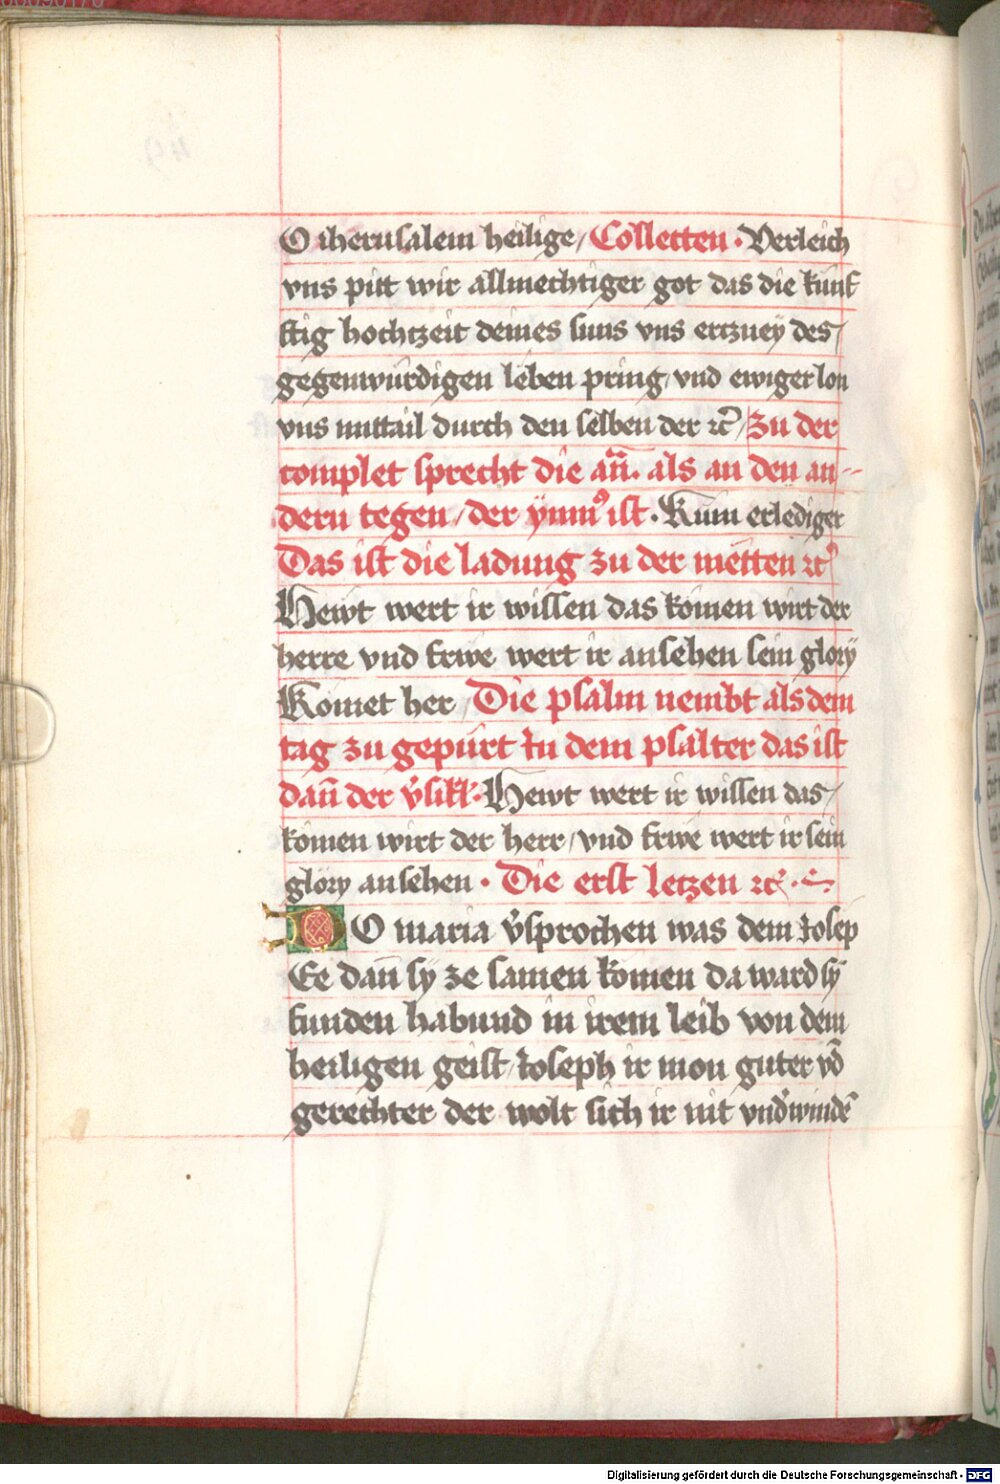 O iherusalem heilige / Collecten · Verleich
vns pitt wir allmechtiger got das die kunf
ftig hochtzeit deines suns vns ertzney des /
gegenwürdigen leben pring / vnd ewiger lon
vns mittail durch den selben der ꝛc̄ / Zu der
complet sprecht die an̄. als an den an--
dern tegen / der ÿmnꝰ ist · Kum erlediger
Das ist die ladung zu der metten ꝛc̄
Hewt wert ir wissen das komen wirt der
herre vnd frwe wert ir ansehen sein glorÿ
Komet her / Die psalm nembt als dem
tag zu gepürt In dem psalter das ist
dan̄ der v̓sikl · Hewt wert ir wissen das /
komen wirt der herr / vnd frwe wert ir sein
glory ansehen · Die erst letzen ꝛc̄ ·
DO maria v̓sprochen was dem Iosep
Ee dan̄ sy ze samen komen da ward sÿ
funden habund in irem leib von dem
heiligen geist / Ioseph ir mon guter vn̄
gerechter der wolt sich ir nit vnd̓windē
Digitalisierung gefördert durch die Deutsche Forschungsgemeinschaft - DFG